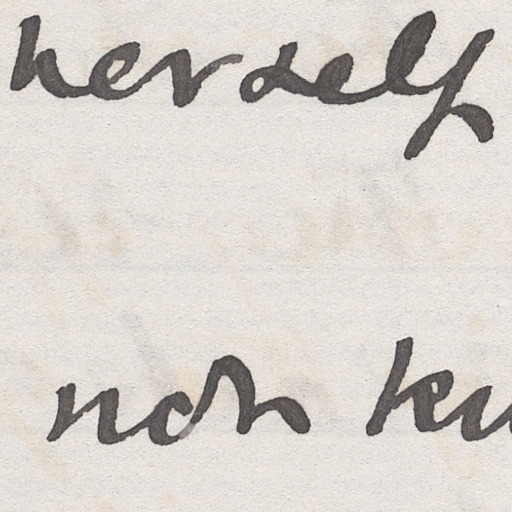 herself
not